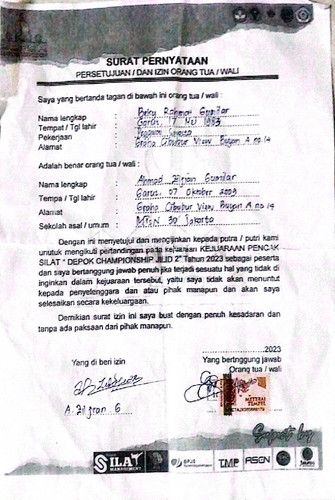 SURAT PERNYATAAN
PERSETUJUAN / DAN IZIN ORANG TUA / WALI
Saya yang bertanda tangan di bawah ini orang tua / wali :
Nama lengkap : Beky Rahmat Gumilar
Tempat / Tgl lahir : Garut, 7 Mei 1983
Pekerjaan :
Alamat : Graha Cibubur View Blok A no 14
Adalah benar orang tua / wali :
Nama lengkap : Ahmad Zilfran Gumilar
Tempat / Tgl lahir : Garut, 07 Oktober 2009
Alamat : Graha Cibubur View A no 14
Sekolah asal / umum : MTsN 30 Jakarta
Dengan ini menyetujui dan mengijinkan kepada putra / putri kami
untuk mengikuti pertandingan pada kejuaraan KEJUARAAN PENCAK
SILAT " DEPOK CHAMPIONSHIP JILID 2" Tahun 2023 sebagai peserta
dan saya bertanggung jawab penuh jika terjadi sesuatu hal yang tidak di
inginkan dalam kejuaraan tersebut, yaitu saya tidak akan menuntut
kepada penyelenggara dan atau pihak manapun dan akan saya
selesaikan secara kekeluargaan.
Demikian surat izin ini saya buat dengan penuh kesadaran dan
tanpa ada paksaan dari pihak manapun.
2023
Yang di beri izin
Yang bertnggung jawab
Orang tua / wali
METERAI
TEMPEL
A. Zilfran G
Suport by
SILAT
MANAGEMENT
BPJS
TMP